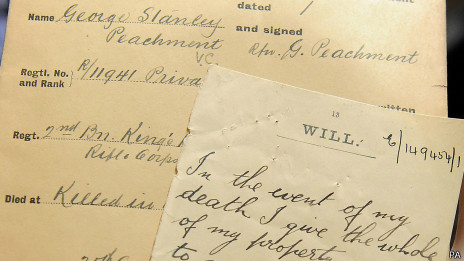 dated 1
Name George Stanley
and signed
Peachment
V.C.
Rfn. G. Peachment
Regtl. No. R/11941 Priva
and Rank
written
Regt. 2nd Bn. King's
Rifle Corps
Died at Killed in
13
WILL.
E/149454/1
In the event of my
death I give the whole
of my property
to
PA